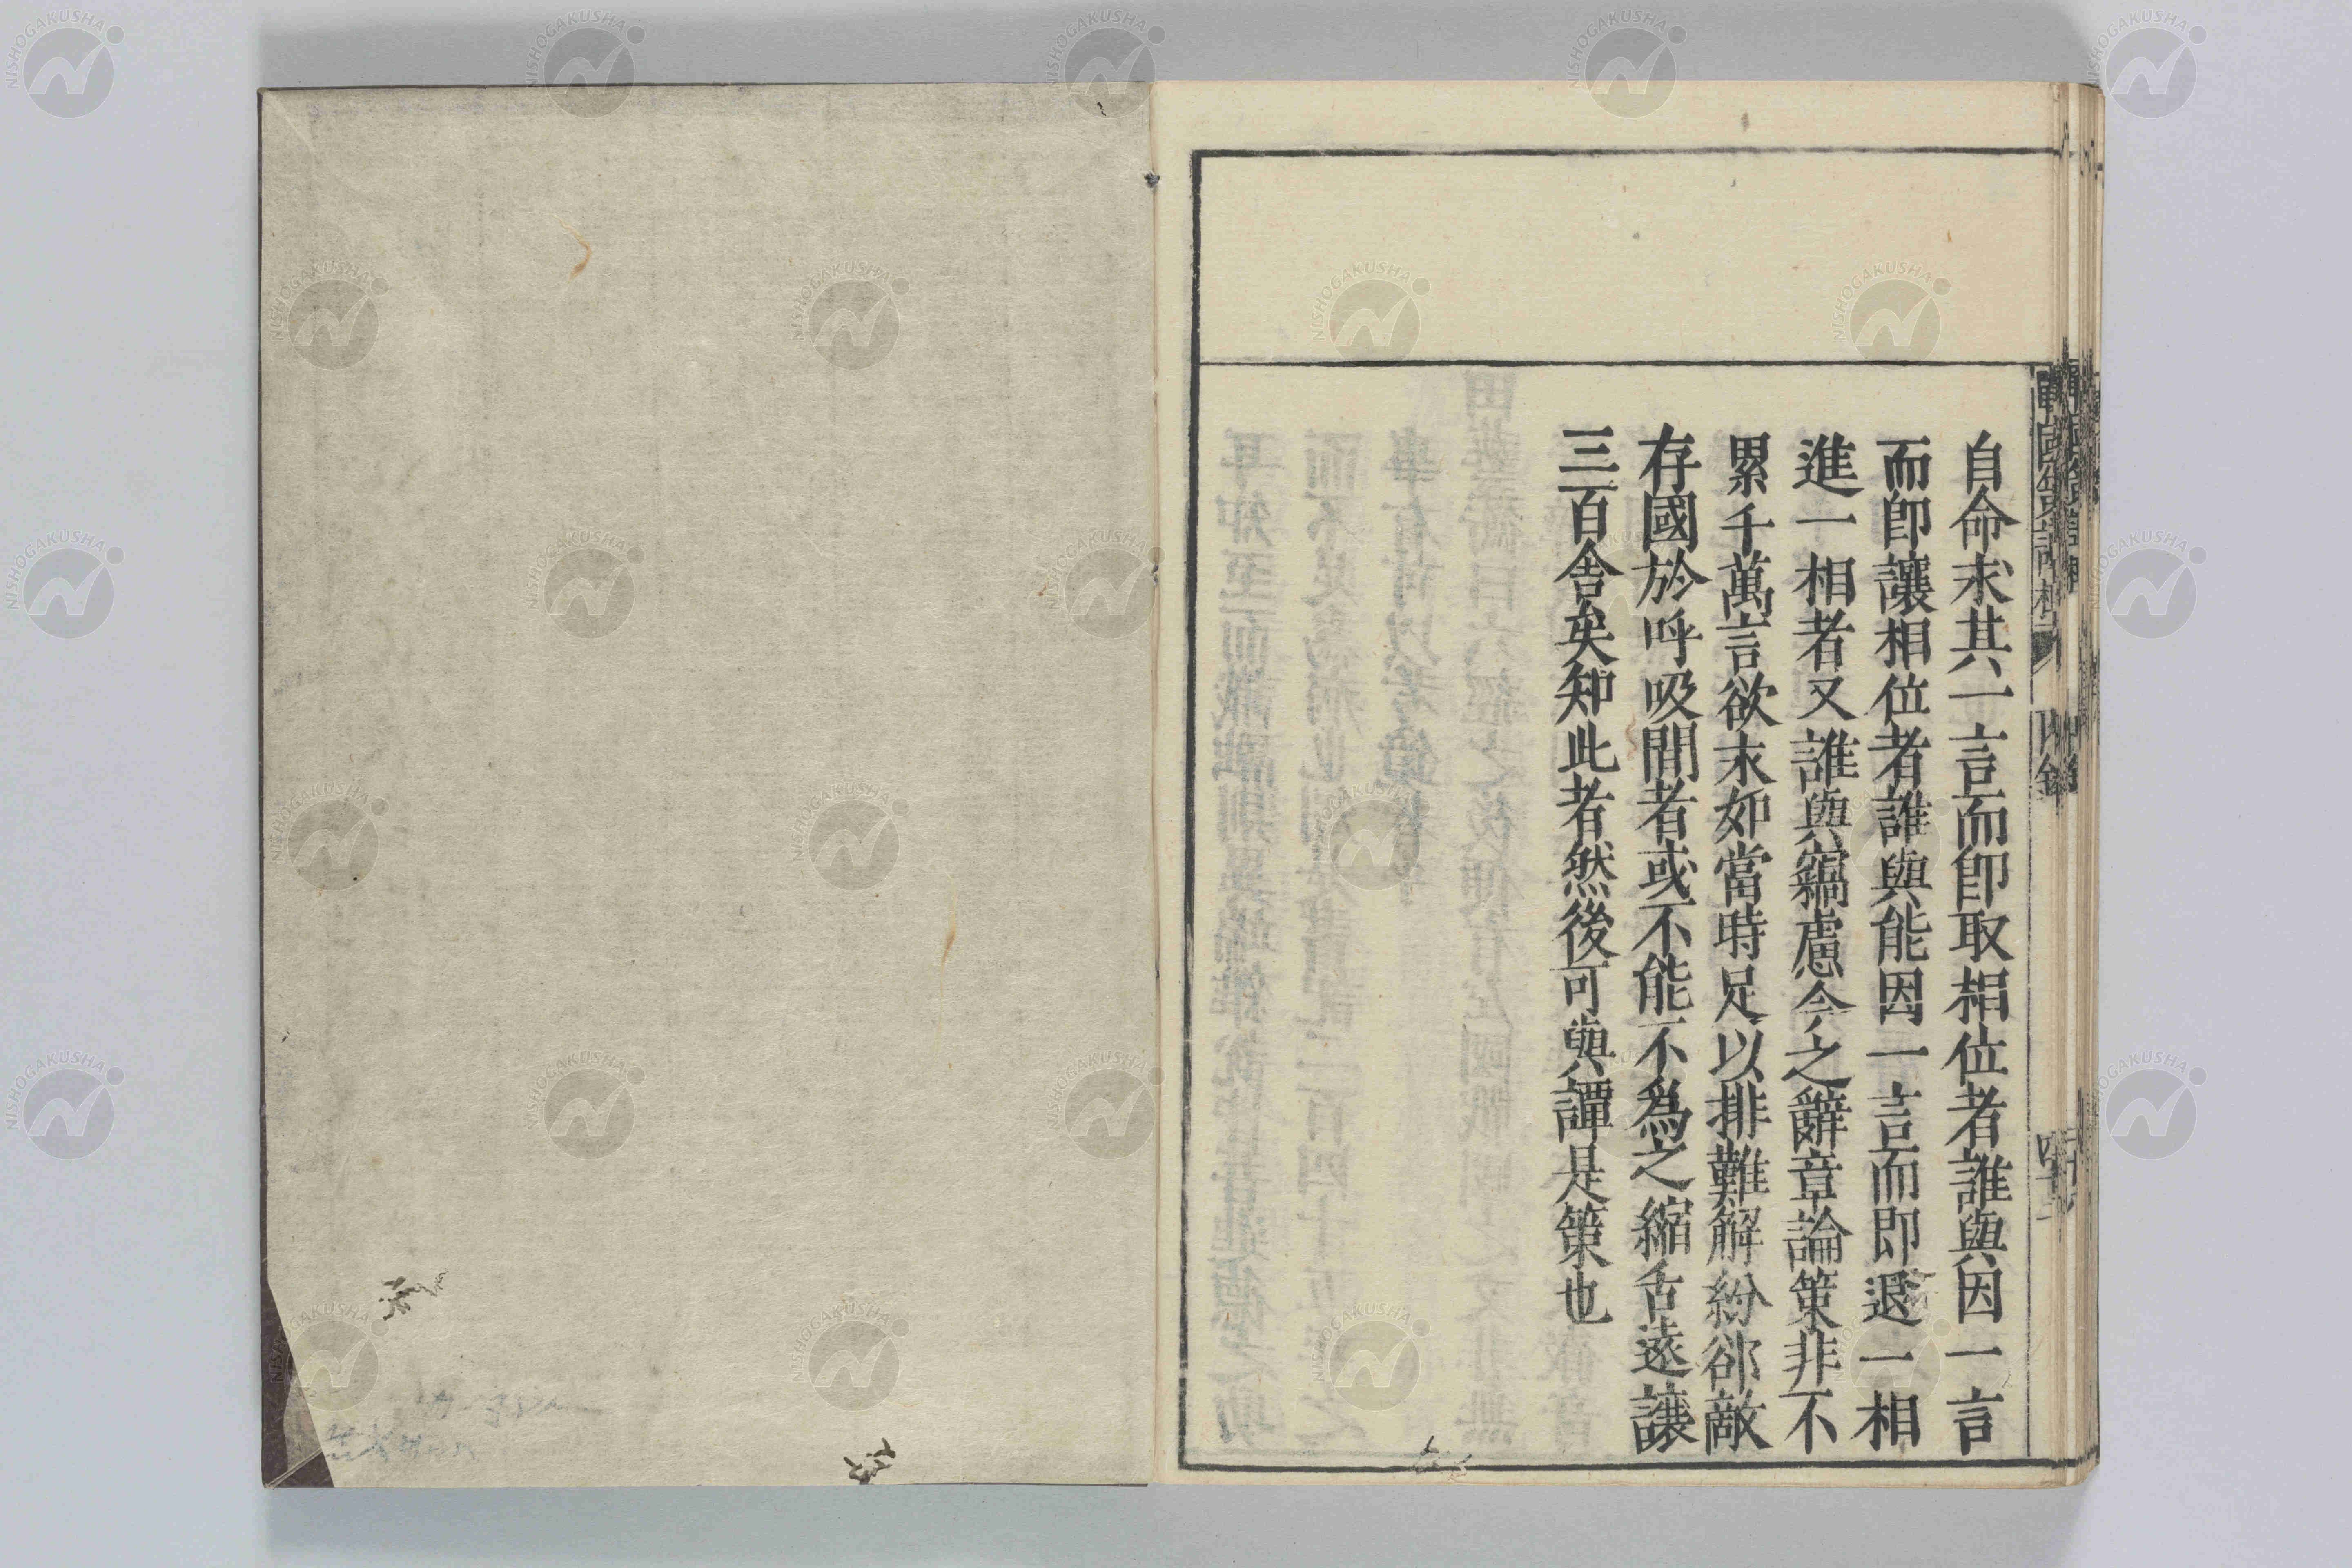 自命求其一言而卽取相位者誰與因一言
而卽讓相位者誰與能因一言而即退一相
進一相者又誰與竊慮今之辭章論策非不
累千萬言欲求如當時足以排難解紛郤敵
存國於呼吸間者或不能不爲之縮舌遠讓
三百舍矣知此者然後可與譚是策也
NISHOGAKUSHA